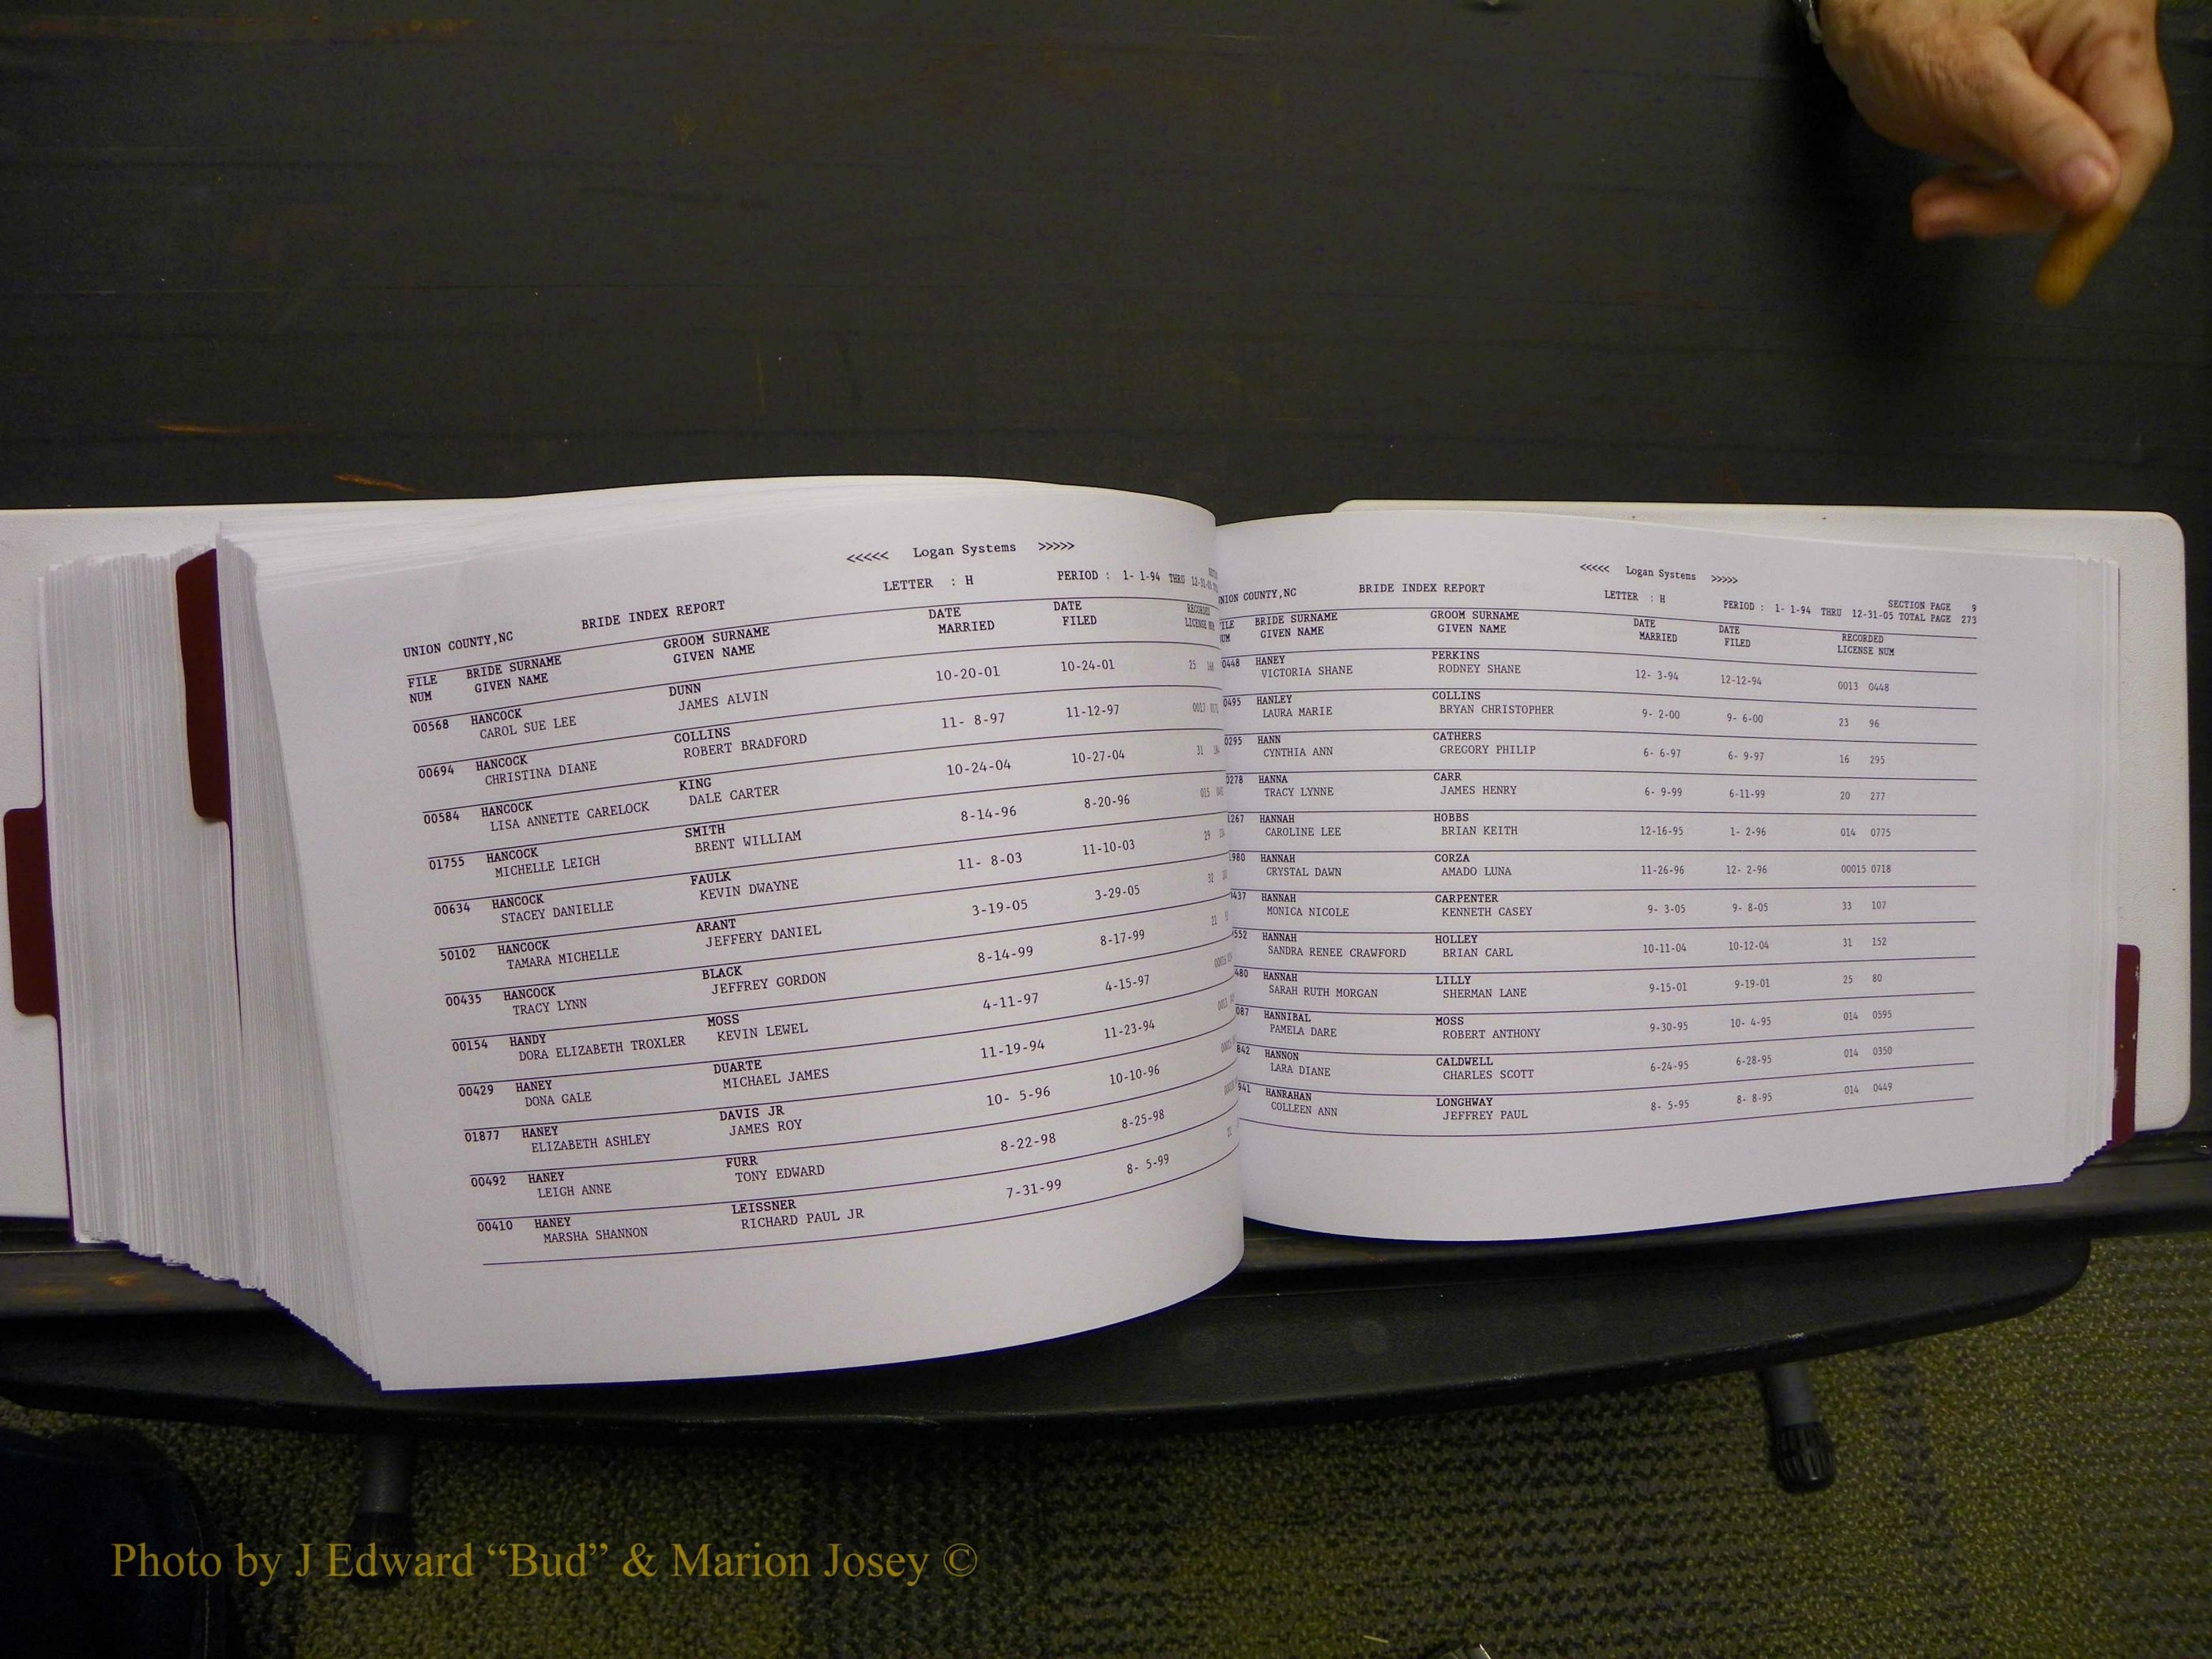 <<<<< Logan Systems >>>>>
UNION COUNTY,NC BRIDE INDEX REPORT LETTER : H PERIOD : 1- 1-94 THRU
FILE BRIDE SURNAME GROOM SURNAME DATE DATE RECORDED
NUM GIVEN NAME GIVEN NAME MARRIED FILED LICENSE
00568 HANCOCK DUNN 10-20-01 10-24-01 25
CAROL SUE LEE JAMES ALVIN
00694 HANCOCK COLLINS 11- 8-97 11-12-97 0017
CHRISTINA DIANE ROBERT BRADFORD
00584 HANCOCK KING 10-24-04 10-27-04 31
LISA ANNETTE CARELOCK DALE CARTER
01755 HANCOCK SMITH 8-14-96 8-20-96 015
MICHELLE LEIGH BRENT WILLIAM
00634 HANCOCK FAULK 11- 8-03 11-10-03 29
STACEY DANIELLE KEVIN DWAYNE
50102 HANCOCK ARANT 3-19-05 3-29-05 32
TAMARA MICHELLE JEFFERY DANIEL
00435 HANCOCK BLACK 8-14-99 8-17-99 21
TRACY LYNN JEFFREY GORDON
00154 HANDY MOSS 4-11-97 4-15-97
DORA ELIZABETH TROXLER KEVIN LEWEL
00429 HANEY DUARTE 11-19-94 11-23-94
DONA GALE MICHAEL JAMES
01877 HANEY DAVIS JR 10- 5-96 10-10-96
ELIZABETH ASHLEY JAMES ROY
00492 HANEY FURR 8-22-98 8-25-98
LEIGH ANNE TONY EDWARD
00410 HANEY LEISSNER 7-31-99 8- 5-99
MARSHA SHANNON RICHARD PAUL JR
<<<<< Logan Systems >>>>>
NION COUNTY,NC BRIDE INDEX REPORT LETTER : H SECTION PAGE 9
PERIOD : 1- 1-94 THRU 12-31-05 TOTAL PAGE 273
ILE BRIDE SURNAME GROOM SURNAME DATE DATE RECORDED
UM GIVEN NAME GIVEN NAME MARRIED FILED LICENSE NUM
0448 HANEY PERKINS 12- 3-94 12-12-94 0013 0448
VICTORIA SHANE RODNEY SHANE
0495 HANLEY COLLINS 9- 2-00 9- 6-00 23 96
LAURA MARIE BRYAN CHRISTOPHER
0295 HANN CATHERS 6- 6-97 6- 9-97 16 295
CYNTHIA ANN GREGORY PHILIP
0278 HANNA CARR 6- 9-99 6-11-99 20 277
TRACY LYNNE JAMES HENRY
1267 HANNAH HOBBS 12-16-95 1- 2-96 014 0775
CAROLINE LEE BRIAN KEITH
1980 HANNAH CORZA 11-26-96 12- 2-96 00015 0718
CRYSTAL DAWN AMADO LUNA
0437 HANNAH CARPENTER 9- 3-05 9- 8-05 33 107
MONICA NICOLE KENNETH CASEY
552 HANNAH HOLLEY 10-11-04 10-12-04 31 152
SANDRA RENEE CRAWFORD BRIAN CARL
480 HANNAH LILLY 9-15-01 9-19-01 25 80
SARAH RUTH MORGAN SHERMAN LANE
087 HANNIBAL MOSS 9-30-95 10- 4-95 014 0595
PAMELA DARE ROBERT ANTHONY
842 HANNON CALDWELL 6-24-95 6-28-95 014 0350
LARA DIANE CHARLES SCOTT
941 HANRAHAN LONGHWAY 8- 5-95 8- 8-95 014 0449
COLLEEN ANN JEFFREY PAUL
Photo by J Edward “Bud” & Marion Josey ©